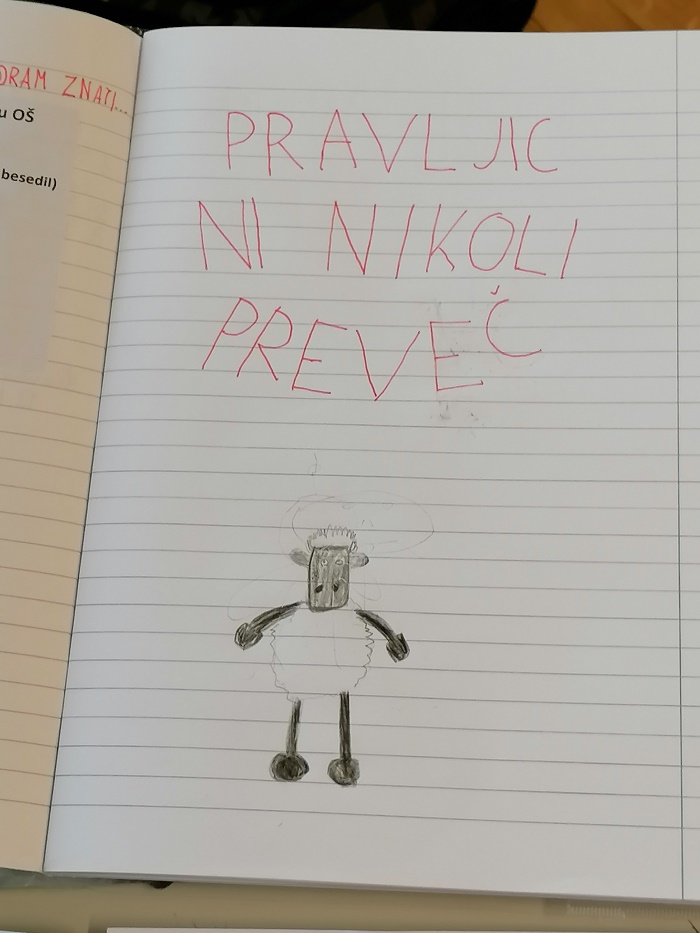 DRAM ZNATI...
u OŠ
besedil)
PRAVLJIC
NI NIKOLI
PREVEČ